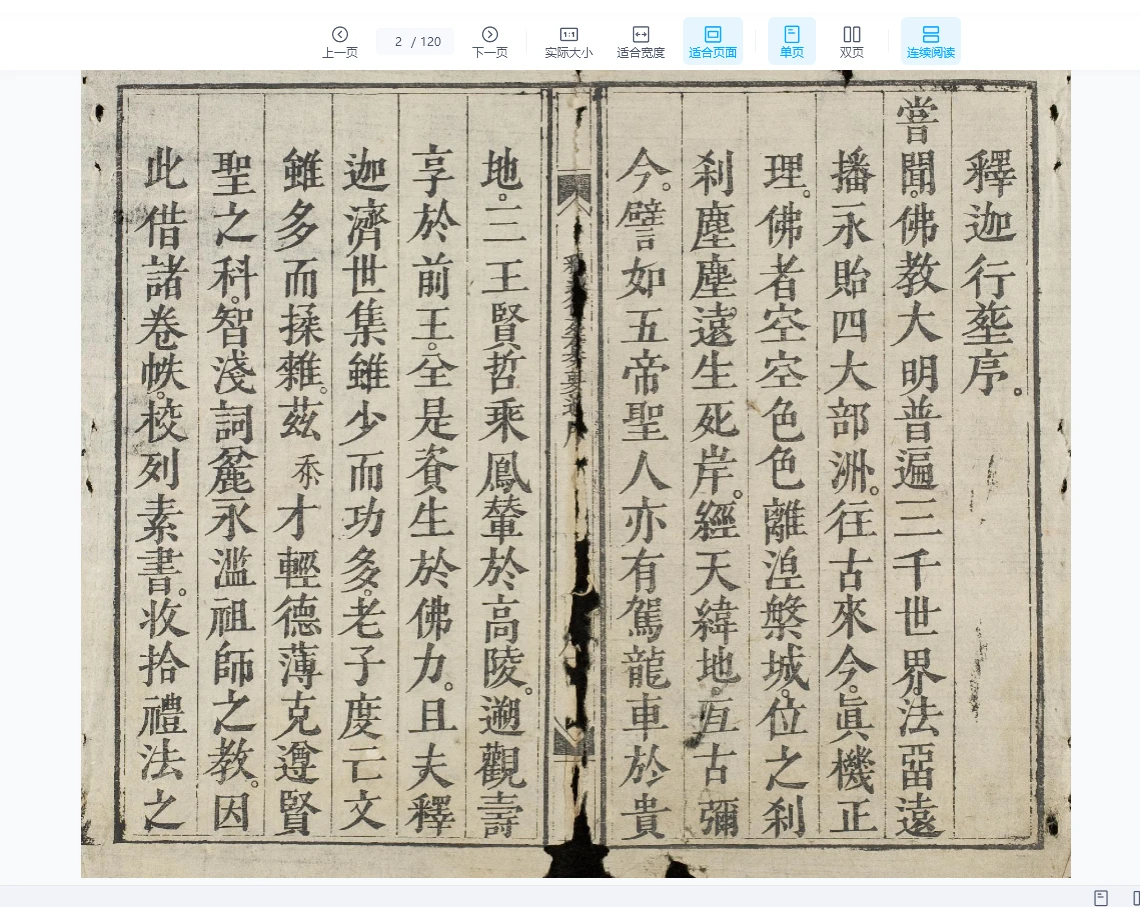 上一页
2 / 120
下一页
1:1
实际大小
适合宽度
适合页面
单页
双页
连续阅读
釋迦行塟序。
嘗聞。佛教大明普遍三千世界。法啚遠
播永貽四大部洲。徃古來今。眞機正
理。佛者空空色色離湼槃城。位之刹
刹塵塵。遠生死岸。經天緯地。亙古彌
今。譬如五帝聖人亦有駕龍車於貴
地。三王賢哲乘鳳輦於高陵。遡觀壽
享於前王。全是資生於佛力。且夫釋
迦濟世集雖少而功多。老子度亡文
雖多而揉雜。茲忝才輕德薄克遵賢
聖之科。智淺詞麁永濫祖師之教。因
此借諸卷帙。校列素書。收拾禮法之